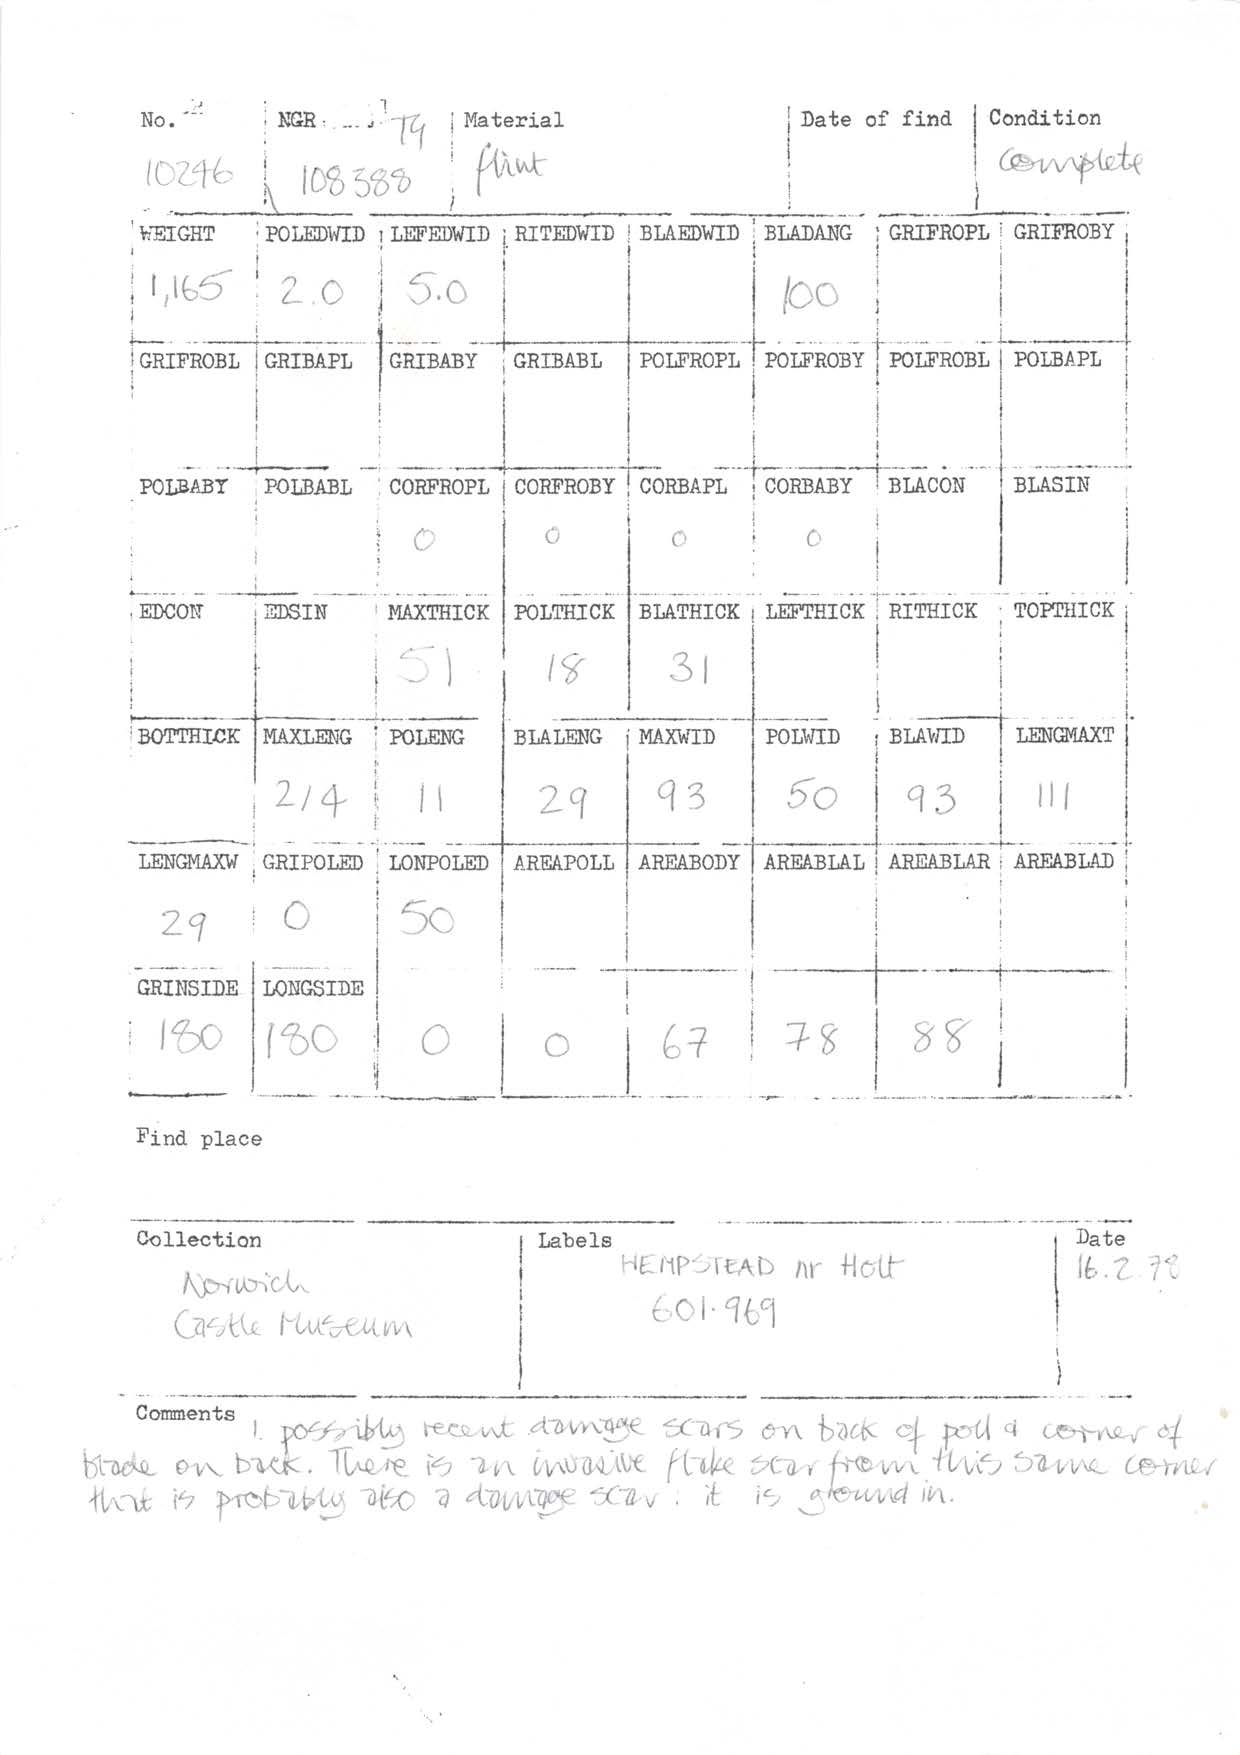 No. NGR TG Material Date of find Condition
10246 108388 flint complete
WEIGHT POLEDWID LEFEDWID RITEDWID BLAEDWID BLADANG GRIFROPL GRIFROBY
1,165 2.0 5.0 100
GRIFROBL GRIBAPL GRIBABY GRIBABL POLFROPL POLFROBY POLFROBL POLBAPL
POLBABY POLBABL CORFROPL CORFROBY CORBAPL CORBABY BLACON BLASIN
0 0 0 0
EDCON EDSIN MAXTHICK POLTHICK BLATHICK LEFTHICK RITHICK TOPTHICK
51 18 31
BOTTHICK MAXLENG POLENG BLALENG MAXWID POLWID BLAWID LENGMAXT
214 11 29 93 50 93 111
LENGMAXW GRIPOLED LONPOLED AREAPOLL AREABODY AREABLAL AREABLAR AREABLAD
29 0 50
GRINSIDE LONGSIDE
180 180 0 0 67 78 88
Find place
Collection Labels Date
HEMPSTEAD nr Holt 16.2.78
Norwich 601.969
Castle Museum
Comments 1. possibly recent damage scars on back of poll & corner of
blade on back. There is an invasive flake scar from this same corner
that is probably also a damage scar: it is ground in.